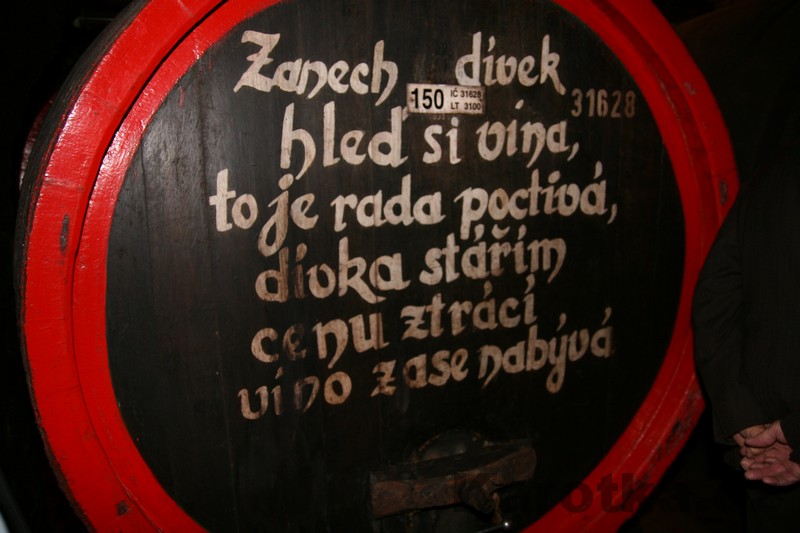 Zanech dívek
150 IČ 31628
LT 3100
31628
hleď si vína,
to je rada poctivá,
dívka stářím
cenu ztrácí
víno zase nabývá